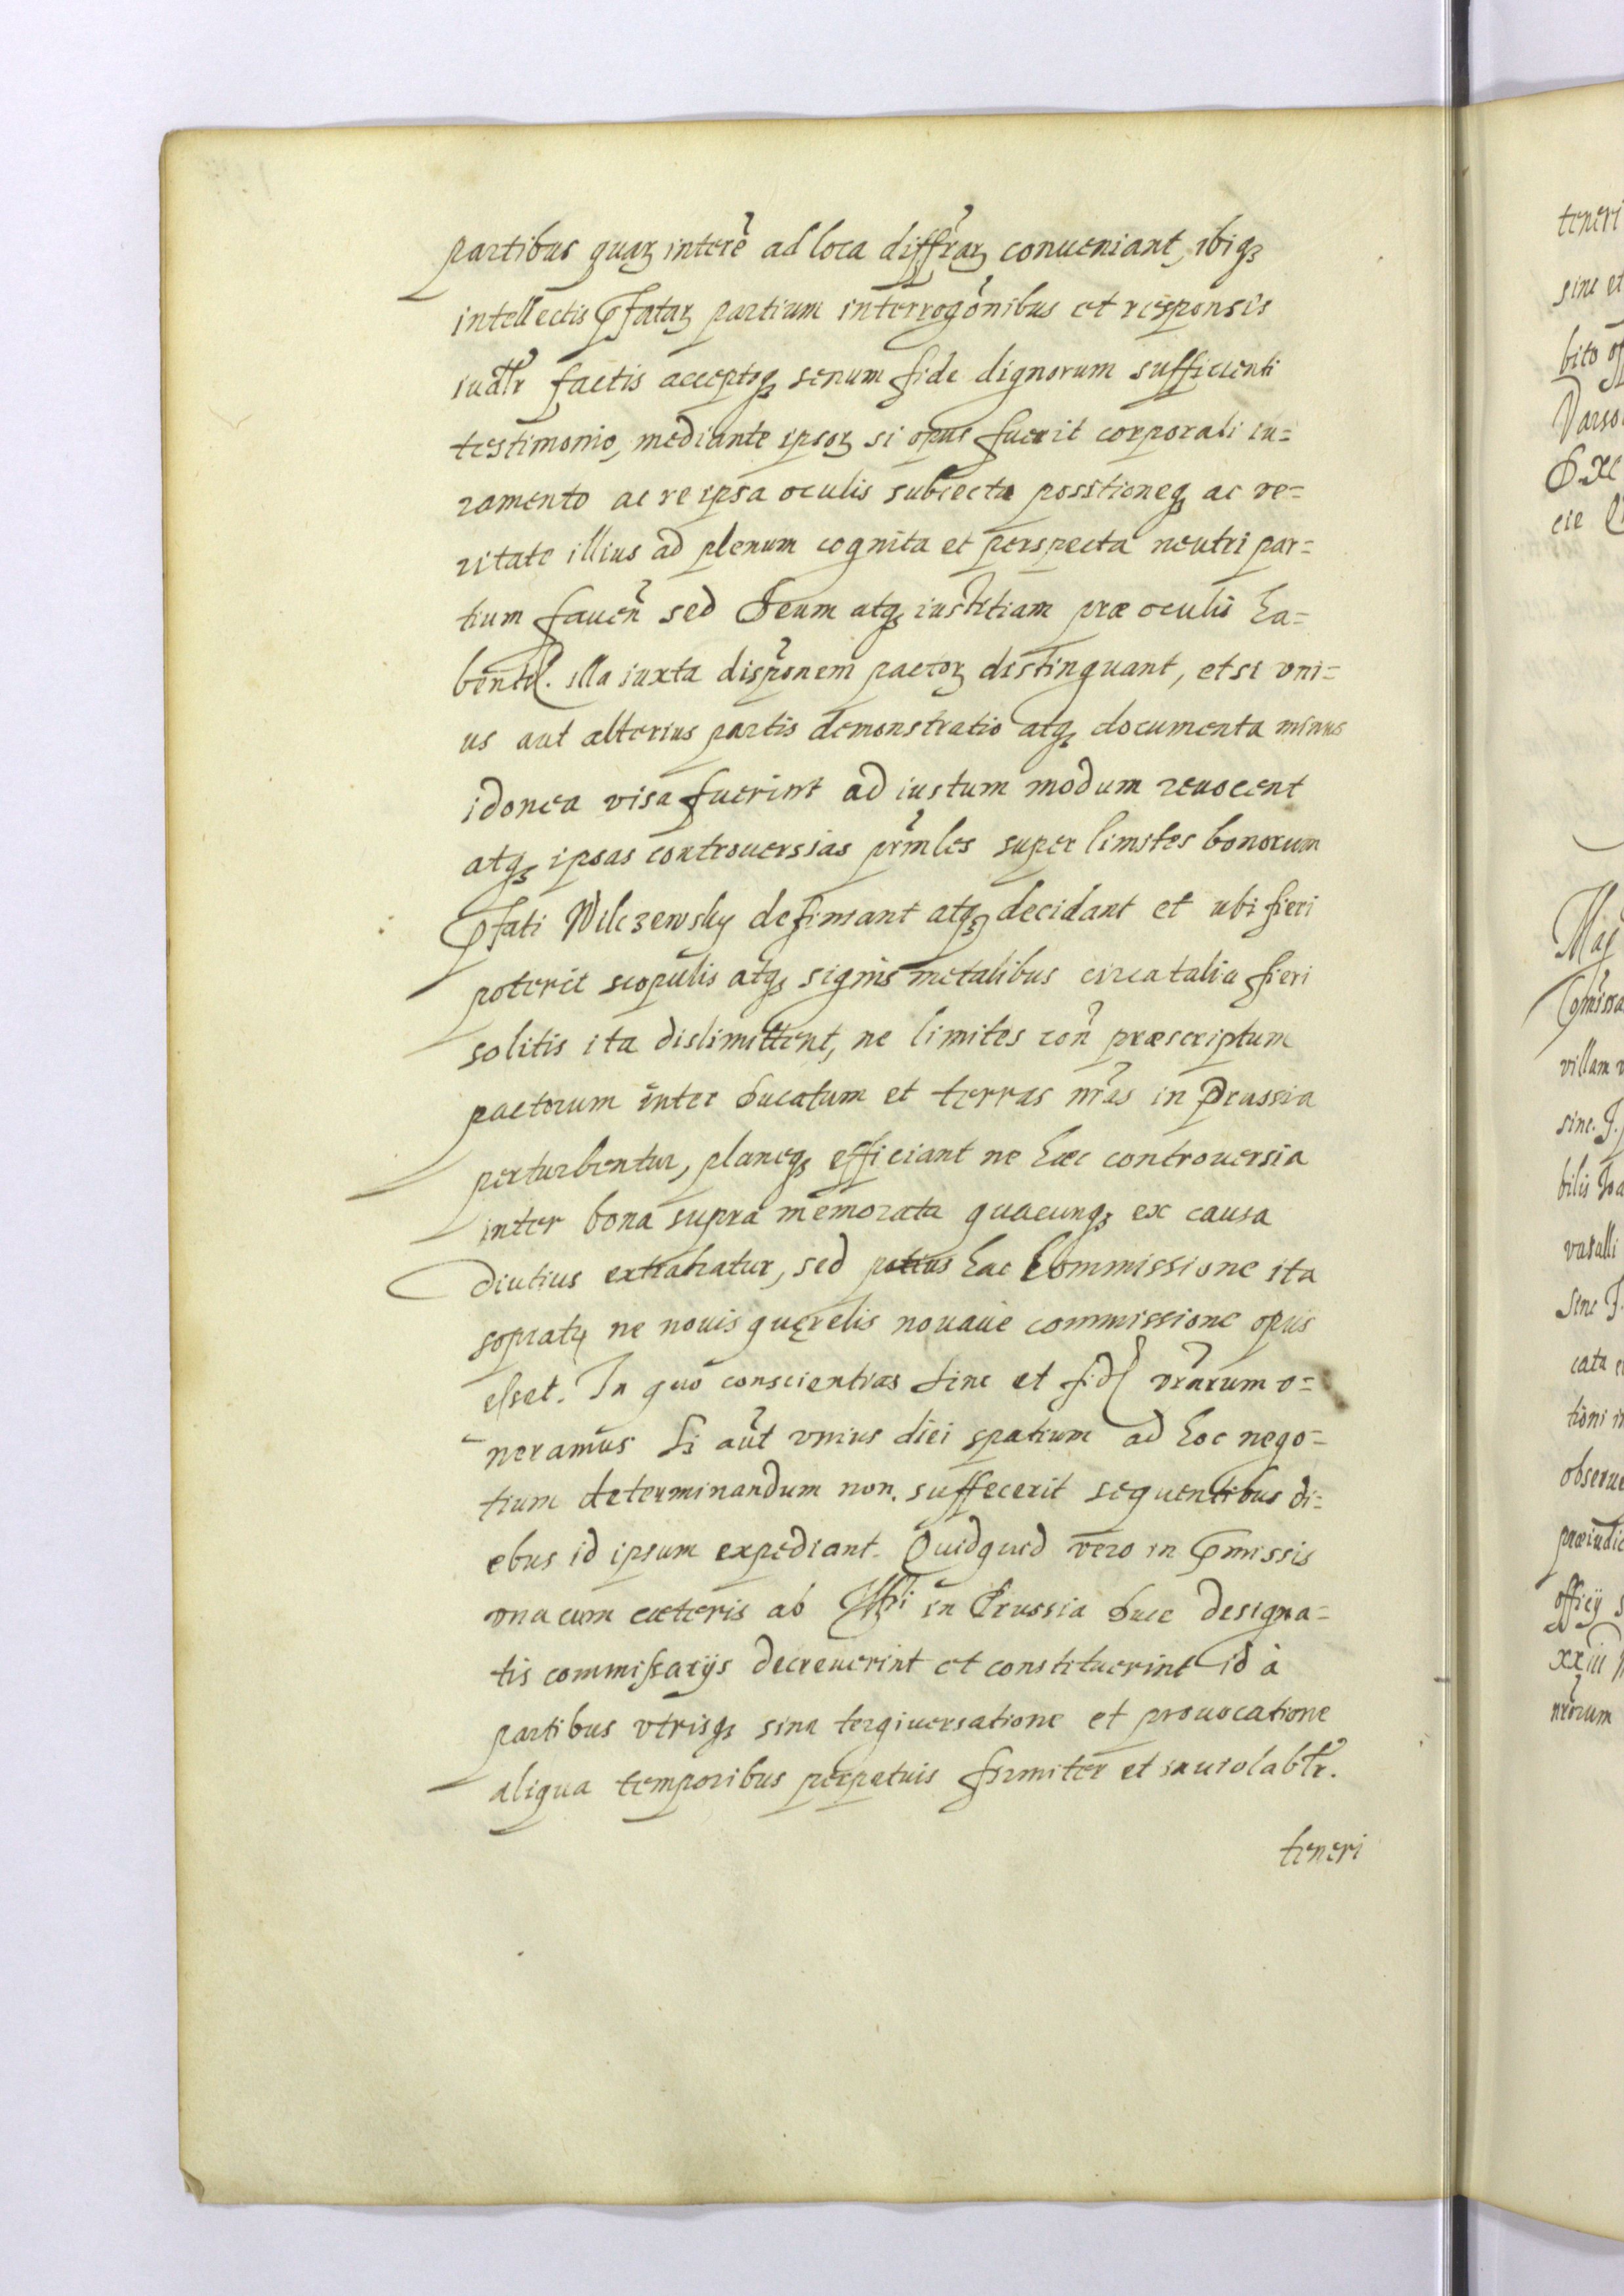 partibus quaꝝ interē ad loca diffr̄aꝝ conueniant, ibiqꝫ
intellectis p̄fataꝝ partium interrogōnibus et responsis
iudlr̄ factis acceptoqꝫ senum fide dignorum sufficienti
testimonio, mediante ipsoꝝ si opus fuerit corporali iu=
ramento ac re ipsa oculis subiecta positioneqꝫ ac ve=
ritate illius ad plenum cognita et perspecta neutri par=
tium fauen̄ sed Deum atqꝫ iustitiam præ oculis ha=
bentes. illa iuxta dispōnem pactoꝝ distinguant, et si vni=
us aut alterius partis demonstratio atqꝫ documenta minus
idonea visa fuerint ad iustum modum reuocent
atqꝫ ipsas controuersias prn̄les super limites bonorum
p̄fati Wilczewsky definiant atqꝫ decidant et ubi fieri
poterit scopulis atqꝫ signis metalibus circa talia fieri
solitis ita dislimittent, ne limites con̄ præscriptum
pactorum inter Ducatum et terras nr̄as in Prussia
perturbentur, planeqꝫ efficiant ne hæc controuersia
inter bona supra memorata quacunqꝫ ex causa
diutius extrahatur, sed potius hac Commissione ita
sopiatꝝ ne nouis quęrelis nouaue commissione opus
esset. In quo conscientias Sinc et fid vrārum o=
neramus Si aūt vnius diei spatium ad hoc nego=
tium determinandum non. suffecerit sequentibus di=
ebus id ipsum expediant. Quidquid vero in p̄missis
vna cum cæteris ab Illri in Prussia Duce designa=
tis commissarijs decreuerint et constituerint id à
partibus vtrisqꝫ sine tergiuersatione et prouocatione
aliqua temporibus perpetuis firmiter et inuiolablr̄.
teneri
teneri
sine et
bito
villam
sine.
bilis
vasalli
cata
tioni
obserue
præiudic
officij
xxiii
nrōrum